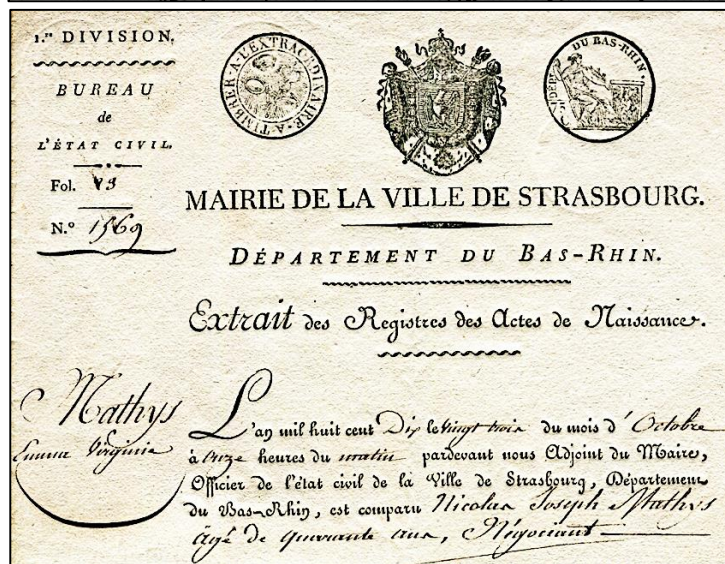 1.re DIVISION.
BUREAU
de
L'ÉTAT CIVIL.
Fol. 93
N.o 1569
A TIMBRER A L'EXTRAORDINAIRE
DU BAS-RHIN.
MAIRIE DE LA VILLE DE STRASBOURG.
DÉPARTEMENT DU BAS-RHIN.
Extrait des Registres des Actes de Naissance.
Mathys
Emma Virginie
L'an mil huit cent Dix le vingt trois du mois d'Octobre
à onze heures du matin pardevant nous Adjoint du Maire,
Officier de l'état civil de la Ville de Strasbourg, Département
du Bas-Rhin, est comparu Nicolas Joseph Mathys
âgé de quarante ans, Négociant